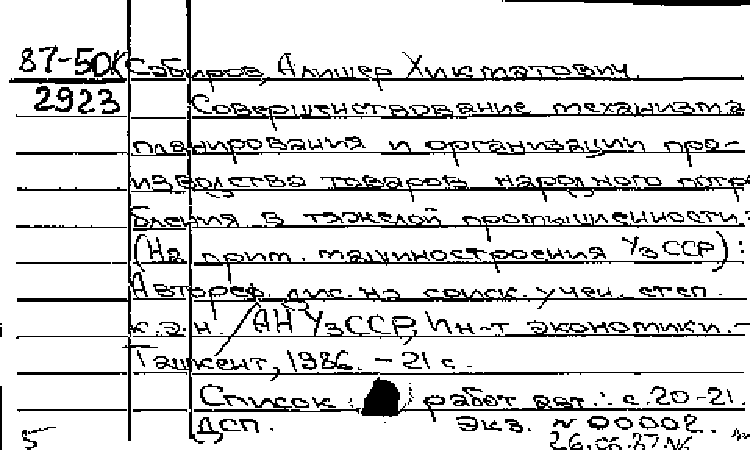 87-50К Сабиров, Алишер Хикматович.
2923 Совершенствование механизма
планирования и организации про-
изводства товаров народного потре
бления в тяжелой промышленности.
(На прим. машиностроения УзССР):
Автореф. дис. на соиск. учен. степ.
к.э.н. / АН УзССР, Ин-т экономики. -
Ташкент, 1986. - 21 с.
Список работ авт.: с. 20-21.
ДСП. Экз. N 00002.
5